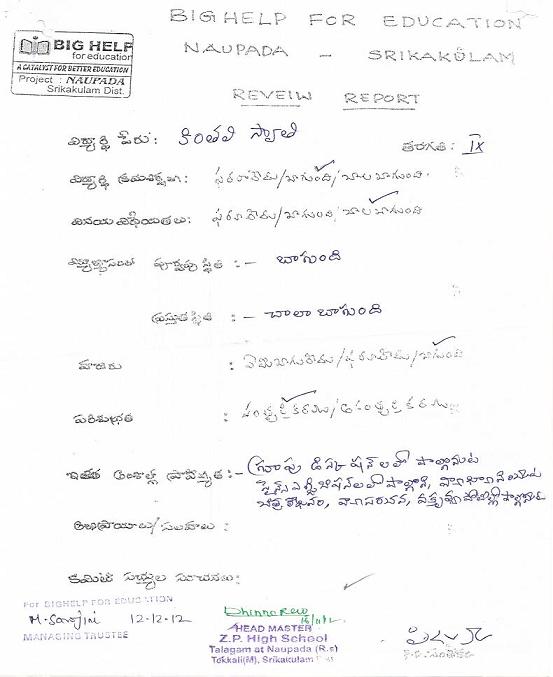 BIG HELP FOR EDUCATION
NAUPADA – SRIKAKULAM
BIG HELP
for education
A CATALYST FOR BETTER EDUCATION
Project : NAUPADA
Srikakulam Dist.
REVEIW REPORT
విద్యార్థి పేరు: కింతలి స్వాతి తరగతి: IX
విద్యార్థి క్రమశిక్షణ: ఫరవాలేదు/బాగుంది/చాలా బాగుంది.
వినయ విధేయతలు: ఫరవాలేదు/బాగుంది/చాలా బాగుంది
పూర్వపు స్థితి :- బాగుంది
ప్రస్తుత స్థితి :- చాలా బాగుంది
హాజరు : ఏమి బాగులేదు/ఫరవాలేదు/బాగుంది
పరిశుభ్రత : సంతృప్తికరము/అసంతృప్తికరము
ఇతర అంశాల్లో ప్రావీణ్యత:- గ్రూపు డిస్కషన్‌లలో పాల్గొనుట
అభిప్రాయాలు/సలహాలు:
కమిటీ సభ్యుల సూచనలు:
For BIGHELP FOR EDUCATION
M. Sarojini 12-12-12
MANAGING TRUSTEE
HEAD MASTER
Z.P. High School
Talagam at Naupada (R.s)
Tekkali(M), Srikakulam Dist